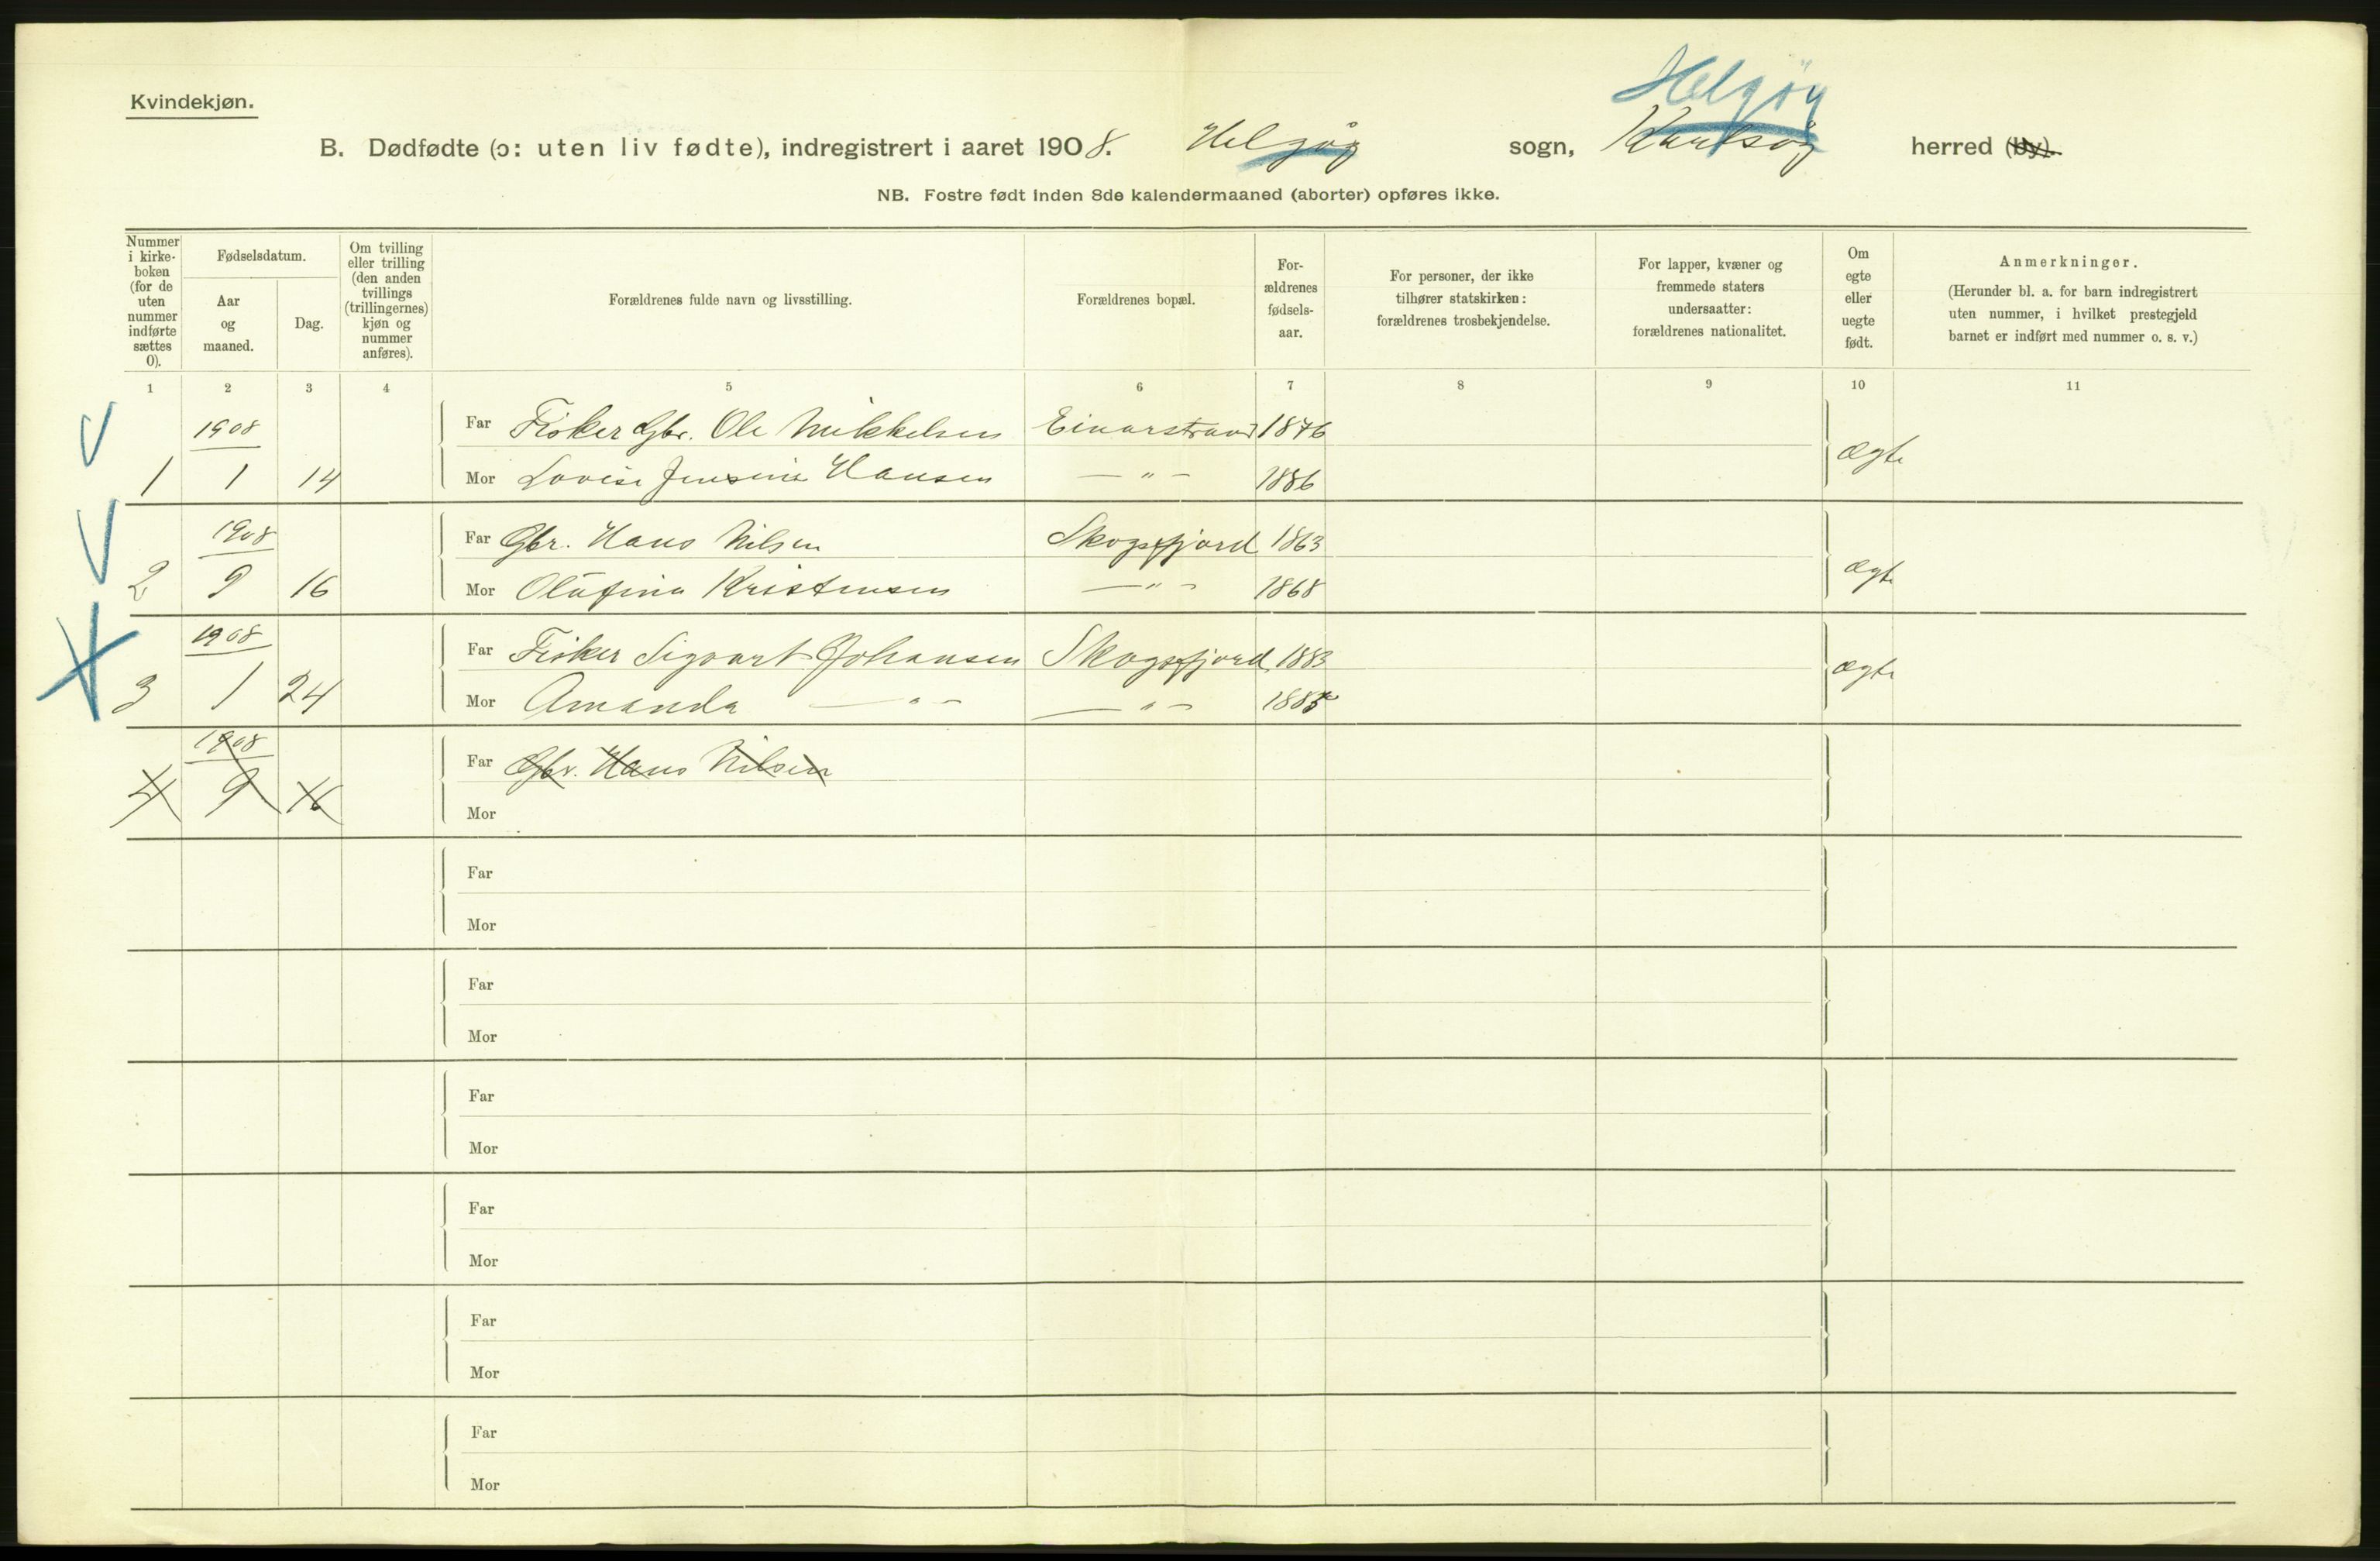 Kvindekjøn.
Helgøy
B. Dødfødte (ɔ: uten liv fødte), indregistrert i aaret 1908. Helgøy sogn, Karlsøy herred (by).
NB. Fostre født inden 8de kalendermaaned (aborter) opføres ikke.
Nummer i kirke-boken (for de uten nummer indførte sættes 0).
Fødselsdatum.
Aar og maaned.
Dag.
Om tvilling eller trilling (den anden tvillings (trillingernes) kjøn og nummer anføres).
Forældrenes fulde navn og livsstilling.
Forældrenes bopæl.
For-ældrenes fødsels-aar.
For personer, der ikke tilhører statskirken: forældrenes trosbekjendelse.
For lapper, kvæner og fremmede staters undersaatter: forældrenes nationalitet.
Om egte eller uegte født.
Anmerkninger.
(Herunder bl. a. for barn indregistrert uten nummer, i hvilket prestegjeld barnet er indført med nummer o. s. v.)
1 2 3 4 5 6 7 8 9 10 11
1908 Far Fisker Gbr. Ole Mikkelsen Einarstrand 1876
1 1 14 Mor Lovise Jensine Hansen — " — 1886 Ægte
1908 Far Gbr. Hans Nilsen Skogsfjord 1863
2 9 16 Mor Olufina Kristensen — " — 1868 Ægte
1908 Far Fisker Sigvart Johansen Skogsfjord 1883
3 1 24 Mor Amanda — " — — " — 1885 Ægte
1908 Far Gbr. Hans Nilsen
4 9 16 Mor
Far
Mor
Far
Mor
Far
Mor
Far
Mor
Far
Mor
Far
Mor